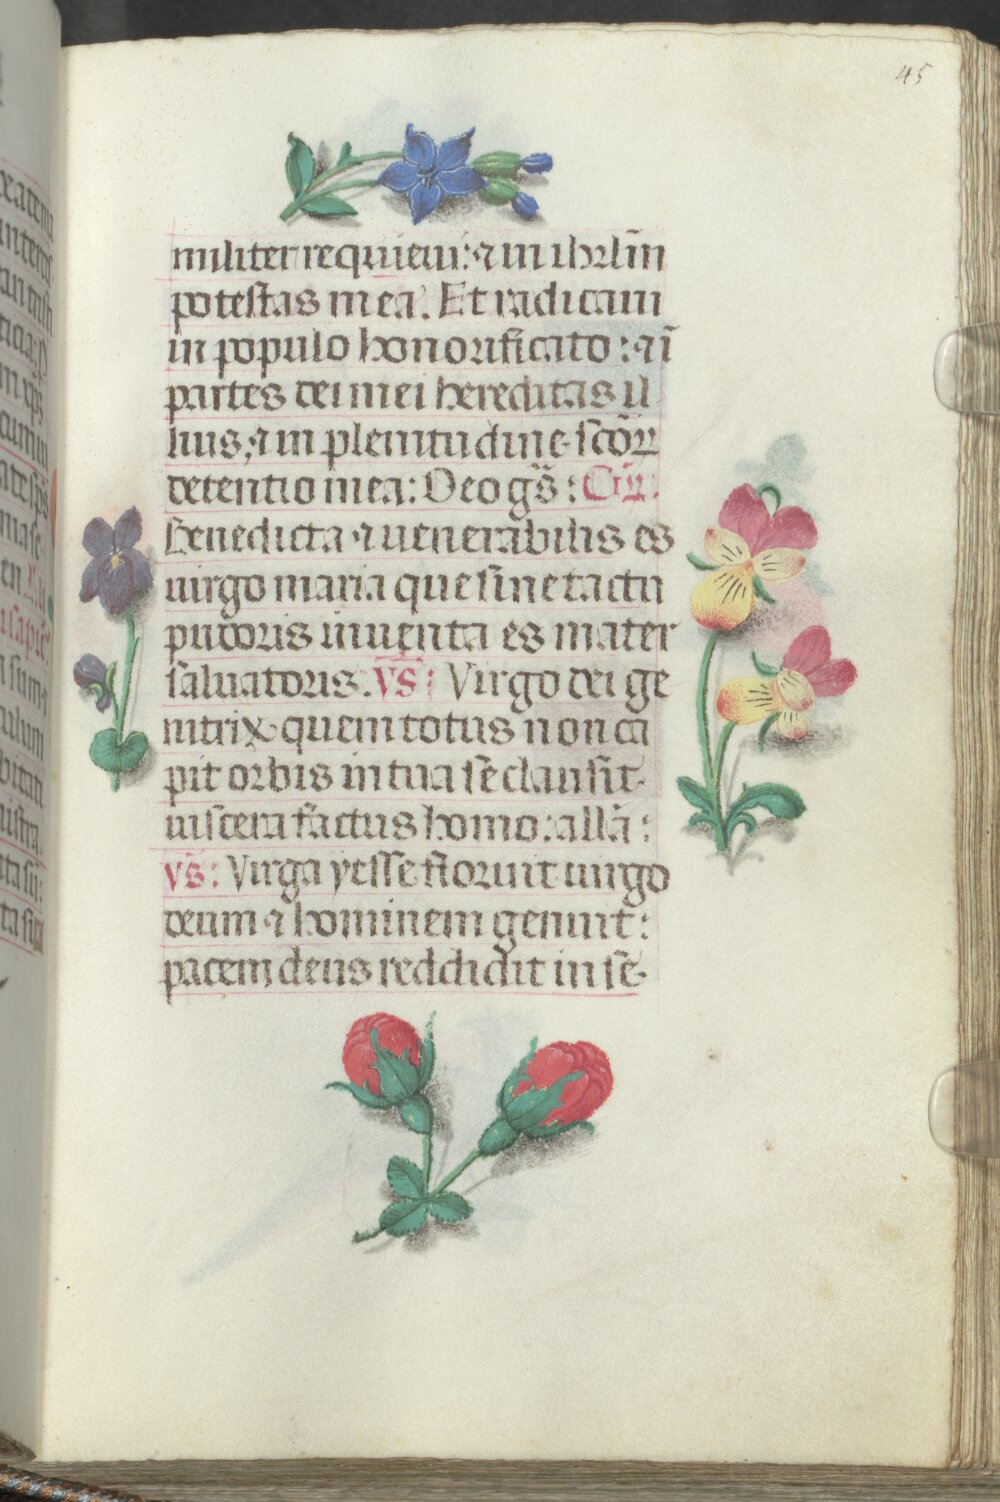 45
militer requieui: ⁊ in ihrl̄m
potestas mea. Et radicaui
in populo honorificato: ⁊ ī
partes dei mei hereditas il
lius, ⁊ in plenitudine scōꝝ
detentio mea: Deo gr̄s:
Benedicta ⁊ uenerabilis es
uirgo maria que sine tactu
pudoris inuenta es mater
saluatoris. vs̄: Virgo dei ge
nitrix quem totus non ca
pit orbis in tua se clausit
uiscera factus homo: allā:
vs̄: Virga yesse floruit uirgo
deum ⁊ hominem genuit:
pacem deus reddidit in se